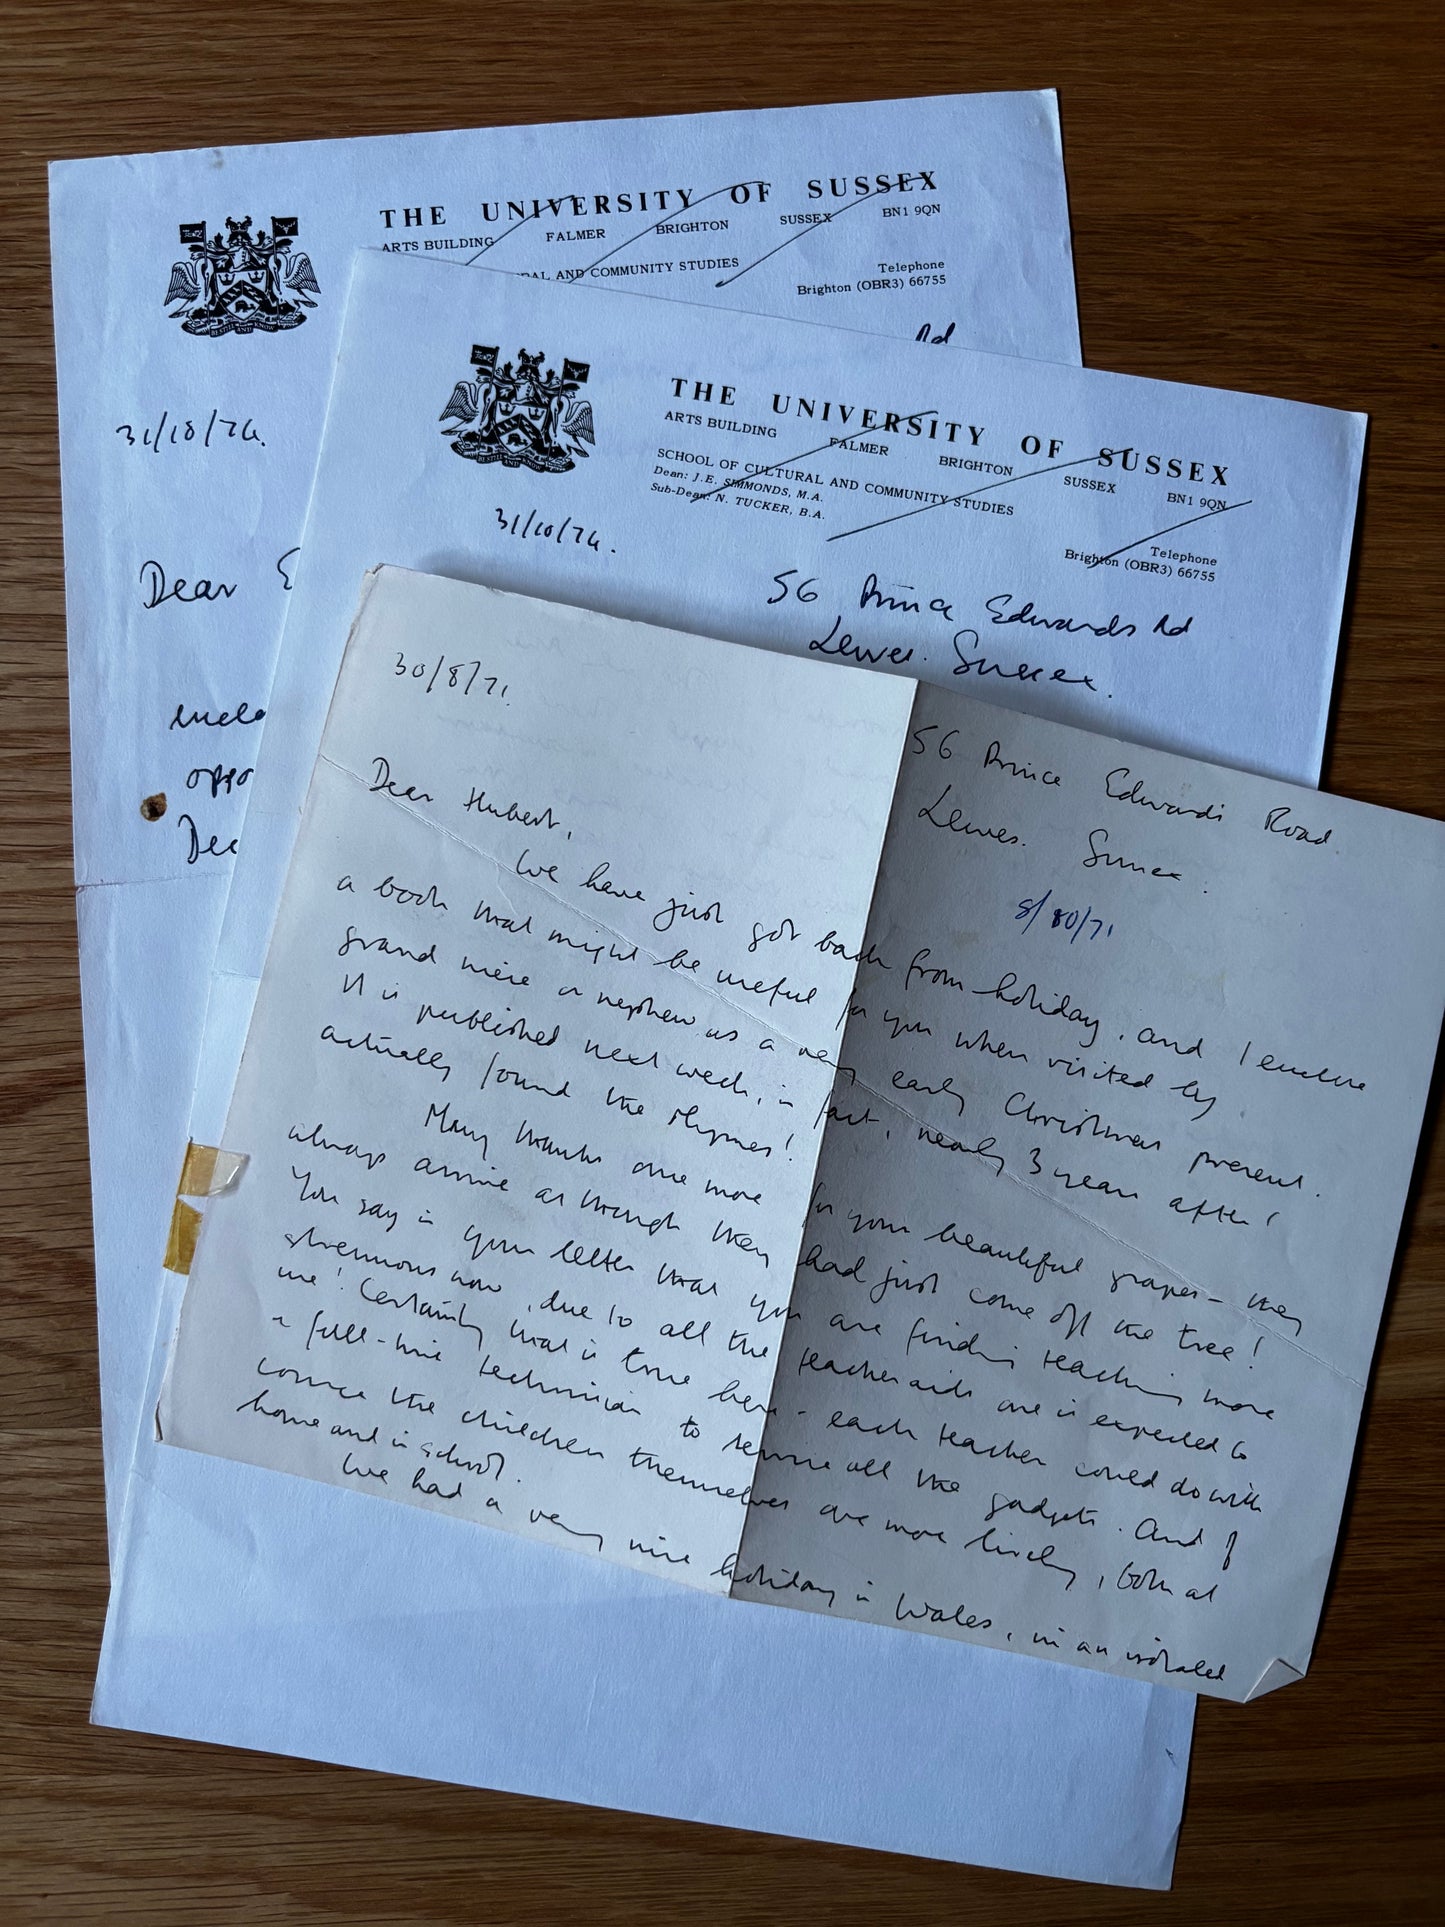 THE UNIVERSITY OF SUSSEX
ARTS BUILDING FALMER BRIGHTON SUSSEX BN1 9QN
RAL AND COMMUNITY STUDIES
Telephone
Brighton (OBR3) 66755
Rd
BE STILL AND KNOW
31/10/74.
Dear E
enclo
oppo
Dec
THE UNIVERSITY OF SUSSEX
ARTS BUILDING FALMER BRIGHTON SUSSEX BN1 9QN
SCHOOL OF CULTURAL AND COMMUNITY STUDIES
Dean: J.E. SIMMONDS, M.A.
Sub-Dean: N. TUCKER, B.A.
Telephone
Brighton (OBR3) 66755
BE STILL AND KNOW
31/10/74.
56 Prince Edwards Rd
Lewes. Sussex.
30/8/71.
56 Prince Edwards Road
Lewes. Sussex.
8/80/71
Dear Hubert,
We have just got back from holiday, and I enclose
a book that might be useful for you when visited by
grand niece or nephew as a very early Christmas present.
It is published next week, in fact, nearly 3 years after I
actually found the rhymes!
Many thanks once more for your beautiful grapes - they
always arrive as though they had just come off the tree!
You say in your letter that you are finding teaching more
strenuous now, due to all the teacher aids one is expected to
use! Certainly that is true here - each teacher could do with
a full-time technician to service all the gadgets. And of
course the children themselves are more lively, both at
home and in school.
We had a very nice holiday in Wales, in an isolated